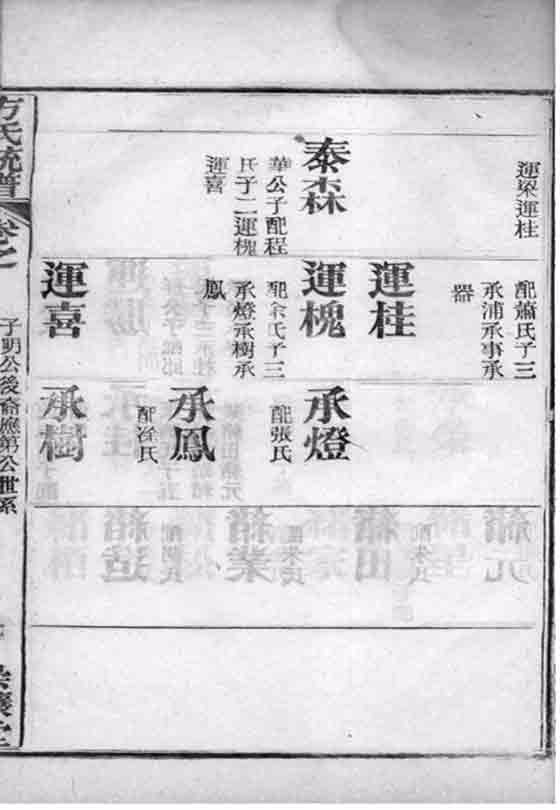 運梁運桂
泰森
華公子配程
氏子二運槐
運喜
配蕭氏子三
承浦承事承
器
運桂
運槐
配余氏子三
承燈承樹承
鳳
運喜
承燈
配張氏
承鳳
承樹
方氏統譜
卷之
子明公後裔應第公世系